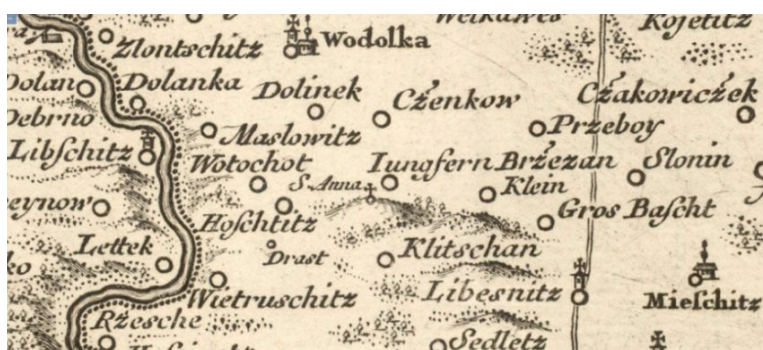 Welkawes
Kojetitz
Zlontschitz
Wodolka
Dolan
Dolanka
Dolinek
Czenkow
Czakowiczek
Debrno
Maslowitz
Przeboy
Libschitz
Wotochot
Iungfern Brzezan
Slonin
S. Anna
Klein
eynow
Hoschtitz
Gros Bascht
Lettek
Drast
Klitschan
ko
Wietruschitz
Libesnitz
Mieschitz
Rzesche
Sedletz